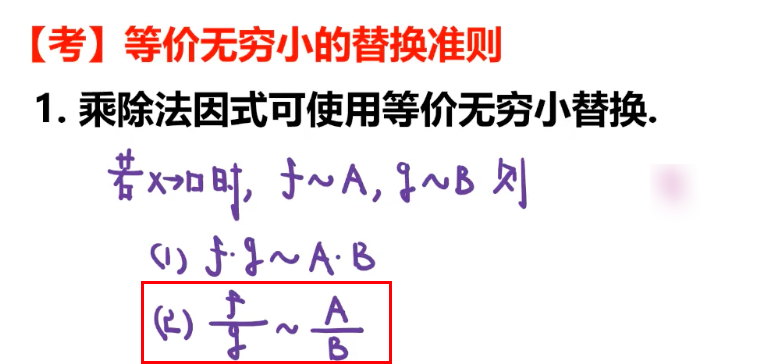 【考】等价无穷小的替换准则
1. 乘除法因式可使用等价无穷小替换.
若x→□时, f~A, g~B 则
(1) f·g~A·B
(2) f/g ~ A/B